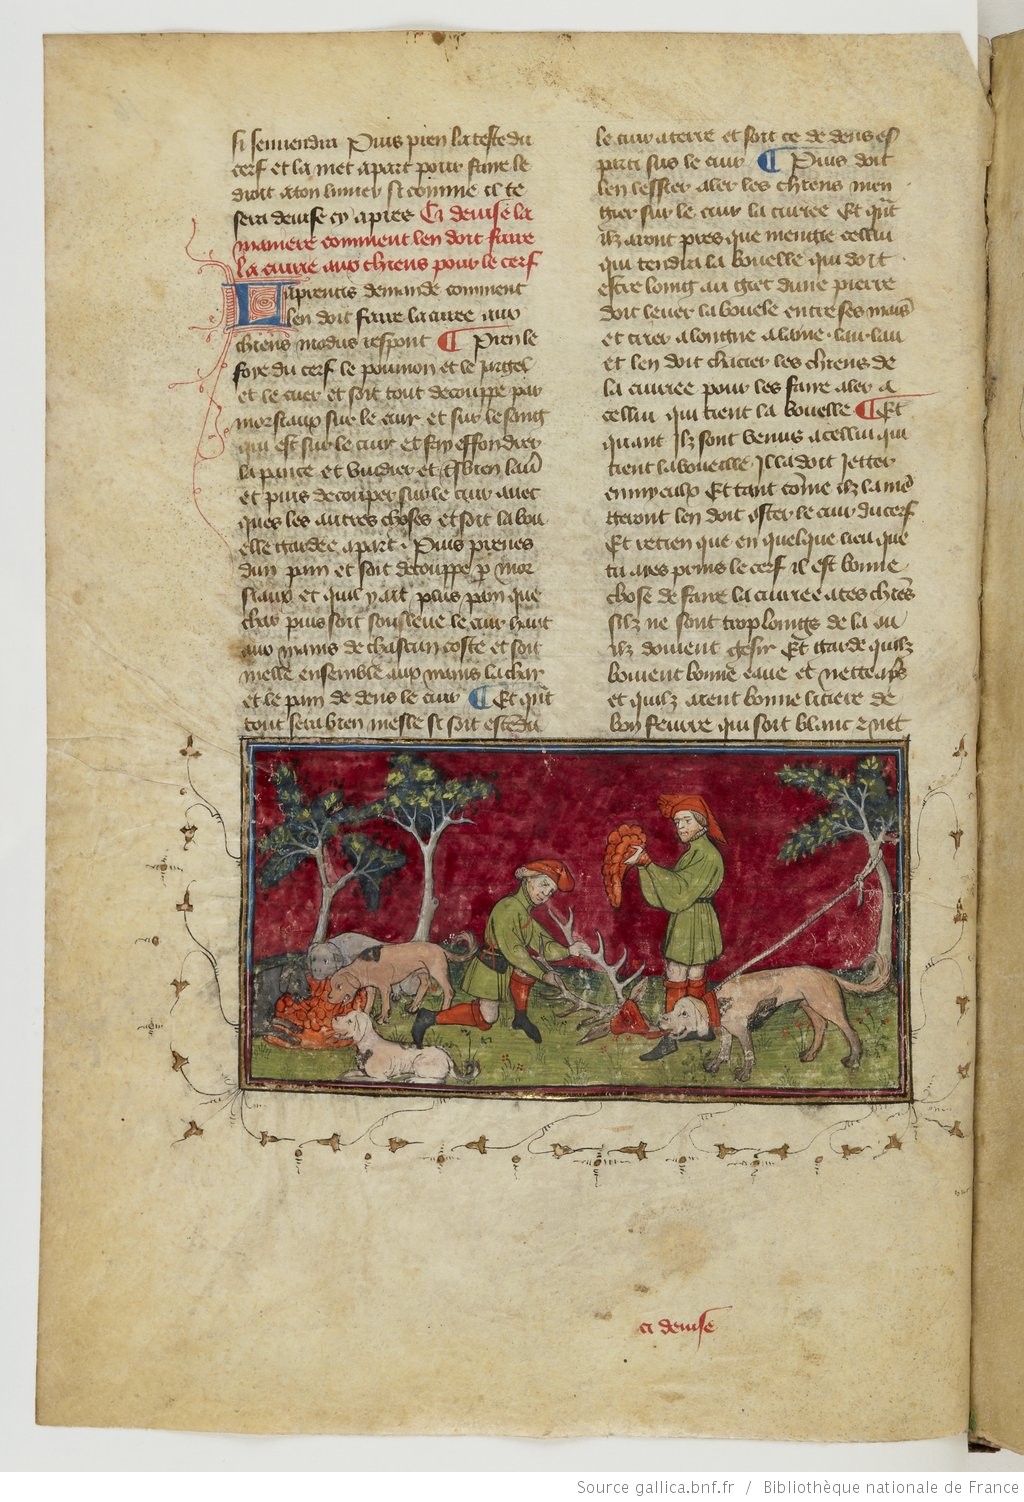 si sen vendra Puis pren la teste du
cerf et la met apart pour faire le
droit a ton limier si comme il te
sera devise cy apres Ci devise la
maniere comment len doit faire
la cuiree aux chiens pour le cerf
Laprentis demande comment
len doit faire la cuiree aux
chiens modus respont ¶ Pren le
foye du cerf le poumon et le jargel
et le cuer et soit tout decouppe par
morsiaux sur le cuir et sur le sang
qui est sur le cuir et fay effondrer
la pance et vuidier et tresbien lav
et puis decouper sur le cuir avec
ques les autres choses et soit la bou
elle gardee apart. Puis prenes
dun pain et soit decouppe p mor
siaux et quil y ait plus pain que
char puis soit sousleve le cuir hault
aux mains de chascun coste et soit
melle ensemble aux mains la char
et le pain dedens le cuir ¶ Et qnt
tout sera bien mesle si soit estendu
le cuir a terre et soit ce de dens es
parti sus le cuir ¶ Puis doit
len lessier aler les chiens men
gier sur le cuir la cuiree Et qnt
ilz aront pres que mengie cellui
qui tendra la bouelle qui doit
estre loing au giet dune pierre
doit lever la bouele entre ses mains
et crier a longue alaine. lau lau
et len doit chacier les chiens de
la cuiree pour les faire aler a
cellui qui tient la bouelle ¶ Et
quant Ilz sont venus a cellui qui
tient la bouelle. Il la doit Jetter
en my eulx Et tant come ilz la men
geront len doit oster le cuir du cerf
Et retien que en quelque lieu que
tu ares prins le cerf il est bonne
chose de faire la cuiree a tes chiens
silz ne sont trop loings de la ou
ilz doivent gesir Et garde quilz
boivent bonne eaue et nette aps
et quilz aient bonne litiere de
bon feurre qui soit blanc z net
ci devise
Source gallica.bnf.fr / Bibliothèque nationale de France